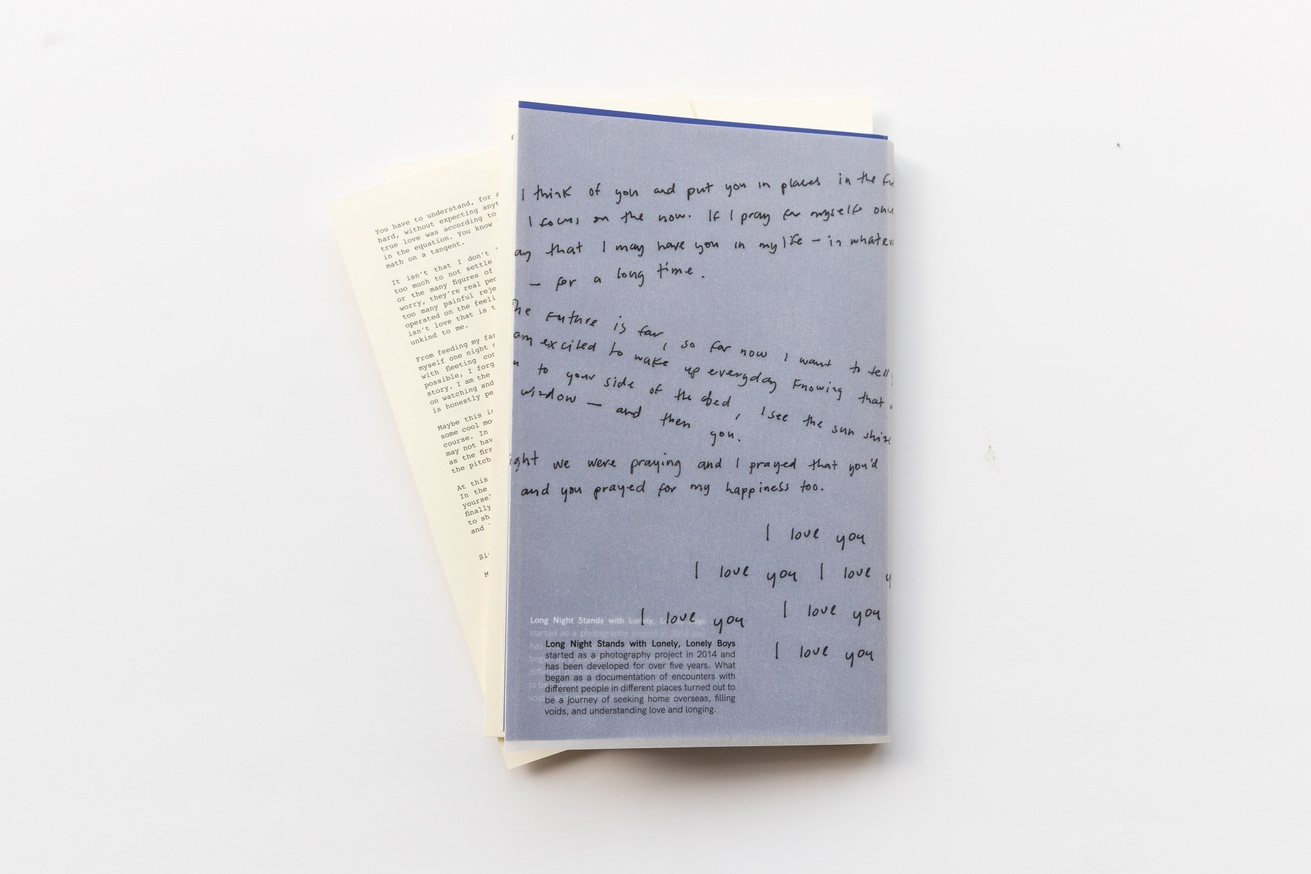 You have to understand, for
hard, without expecting
true love was according to
in the equation. You know
math on a tangent.
It isn't that I don't
too much to not settle
or the many figures of
worry, they're real
too many painful
operated on the
isn't love that is
unkind to me.
From feeding my
myself one night
with fleeting
possible, I
story. I am the
on watching and
is honestly
Maybe this
some cool
course. In
may not
as the
the pitch
At this
In the
finally
to
and
I think of you and put you in places in the
I focus on the now. If I pray for myself
that I may have you in my life – in
– for a long time.
Future is far, so for now I want to
am excited to wake up everyday knowing that
to your side of the bed, I see the sun
window – and then you.
we were praying and I prayed that you'd
and you prayed for my happiness too.
I love you
I love you I love
I love you I love you
I love you
Long Night Stands with
started as a photography project in 2014
Long Night Stands with Lonely, Lonely Boys
started as a photography project in 2014 and
has been developed for over five years. What
began as a documentation of encounters with
different people in different places turned out to
be a journey of seeking home overseas, filling
voids, and understanding love and longing.